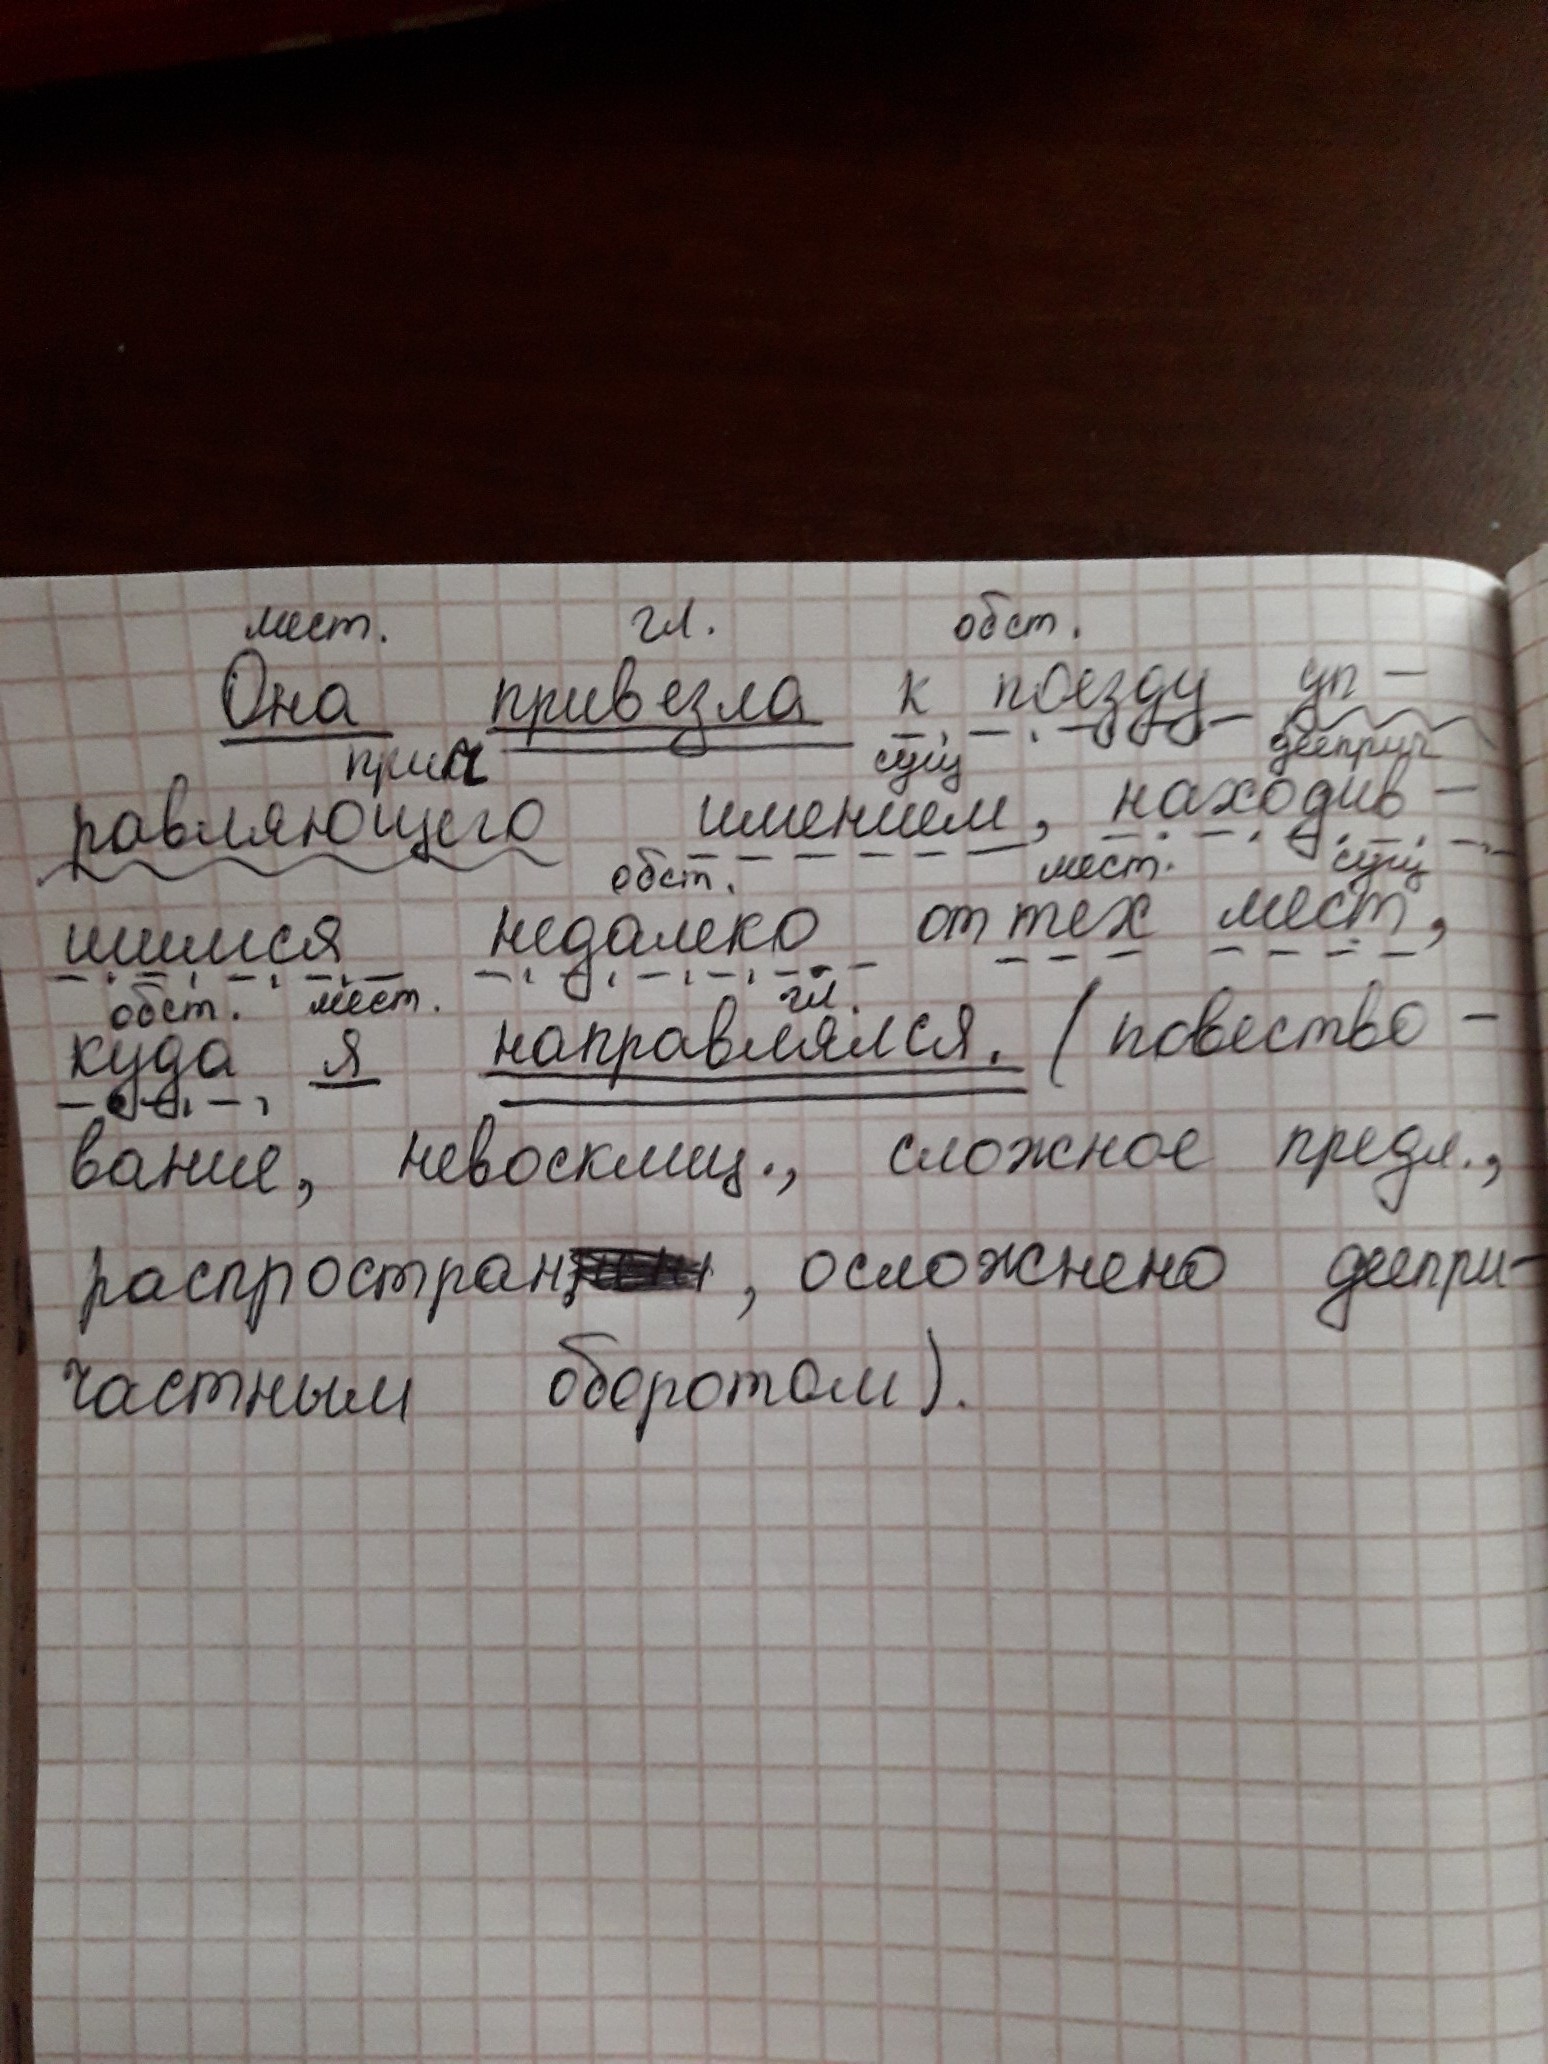 мест. гл. обст.
Она привезла к поезду уп-
прил сущ дееприч
равляющего имением, находив-
обст. мест. сущ
шимся недалеко от тех мест,
обст. мест. гл.
куда я направлялся. (повество-
вание, невосклиц., сложное предл.,
распростран, осложнено деепри-
частным оборотом).